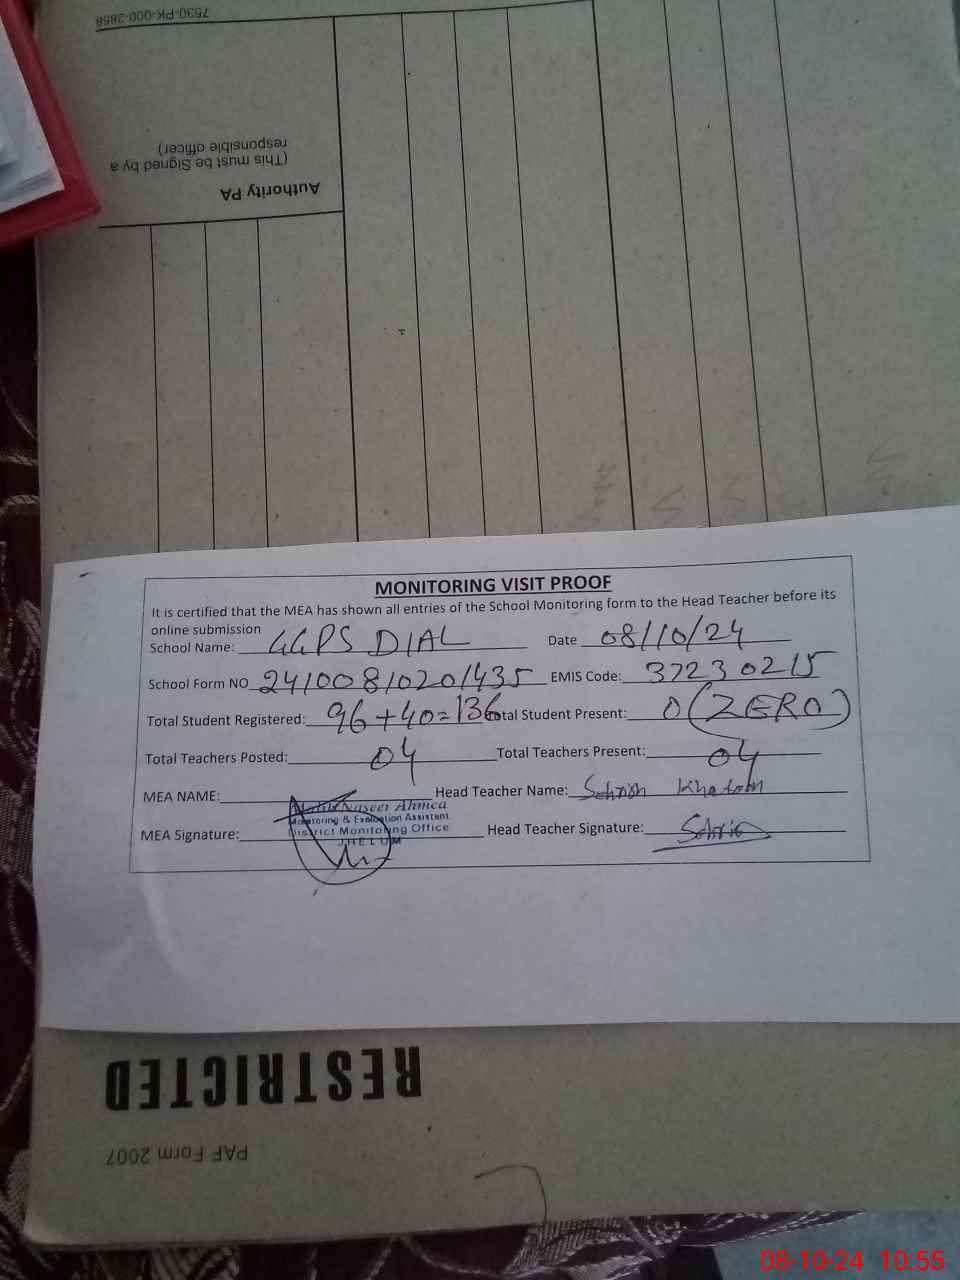 7530-PK-000-2858
(This must be Signed by a
responsible officer)
Authority PA
MONITORING VISIT PROOF
It is certified that the MEA has shown all entries of the School Monitoring form to the Head Teacher before its
online submission
School Name: GGPS DIAL Date 08/10/24
School Form NO 24100810201435 EMIS Code: 37230215
Total Student Registered: 96+40=136 Total Student Present: 0 (ZERO)
Total Teachers Posted: 04 Total Teachers Present: 04
MEA NAME: Head Teacher Name: Sehrish Khatoon
Naseer Ahmed
Monitoring & Evaluation Assistant
District Monitoring Office
JHELUM
MEA Signature: Head Teacher Signature:
RESTRICTED
PAF Form 2007
08-10-24 10:55